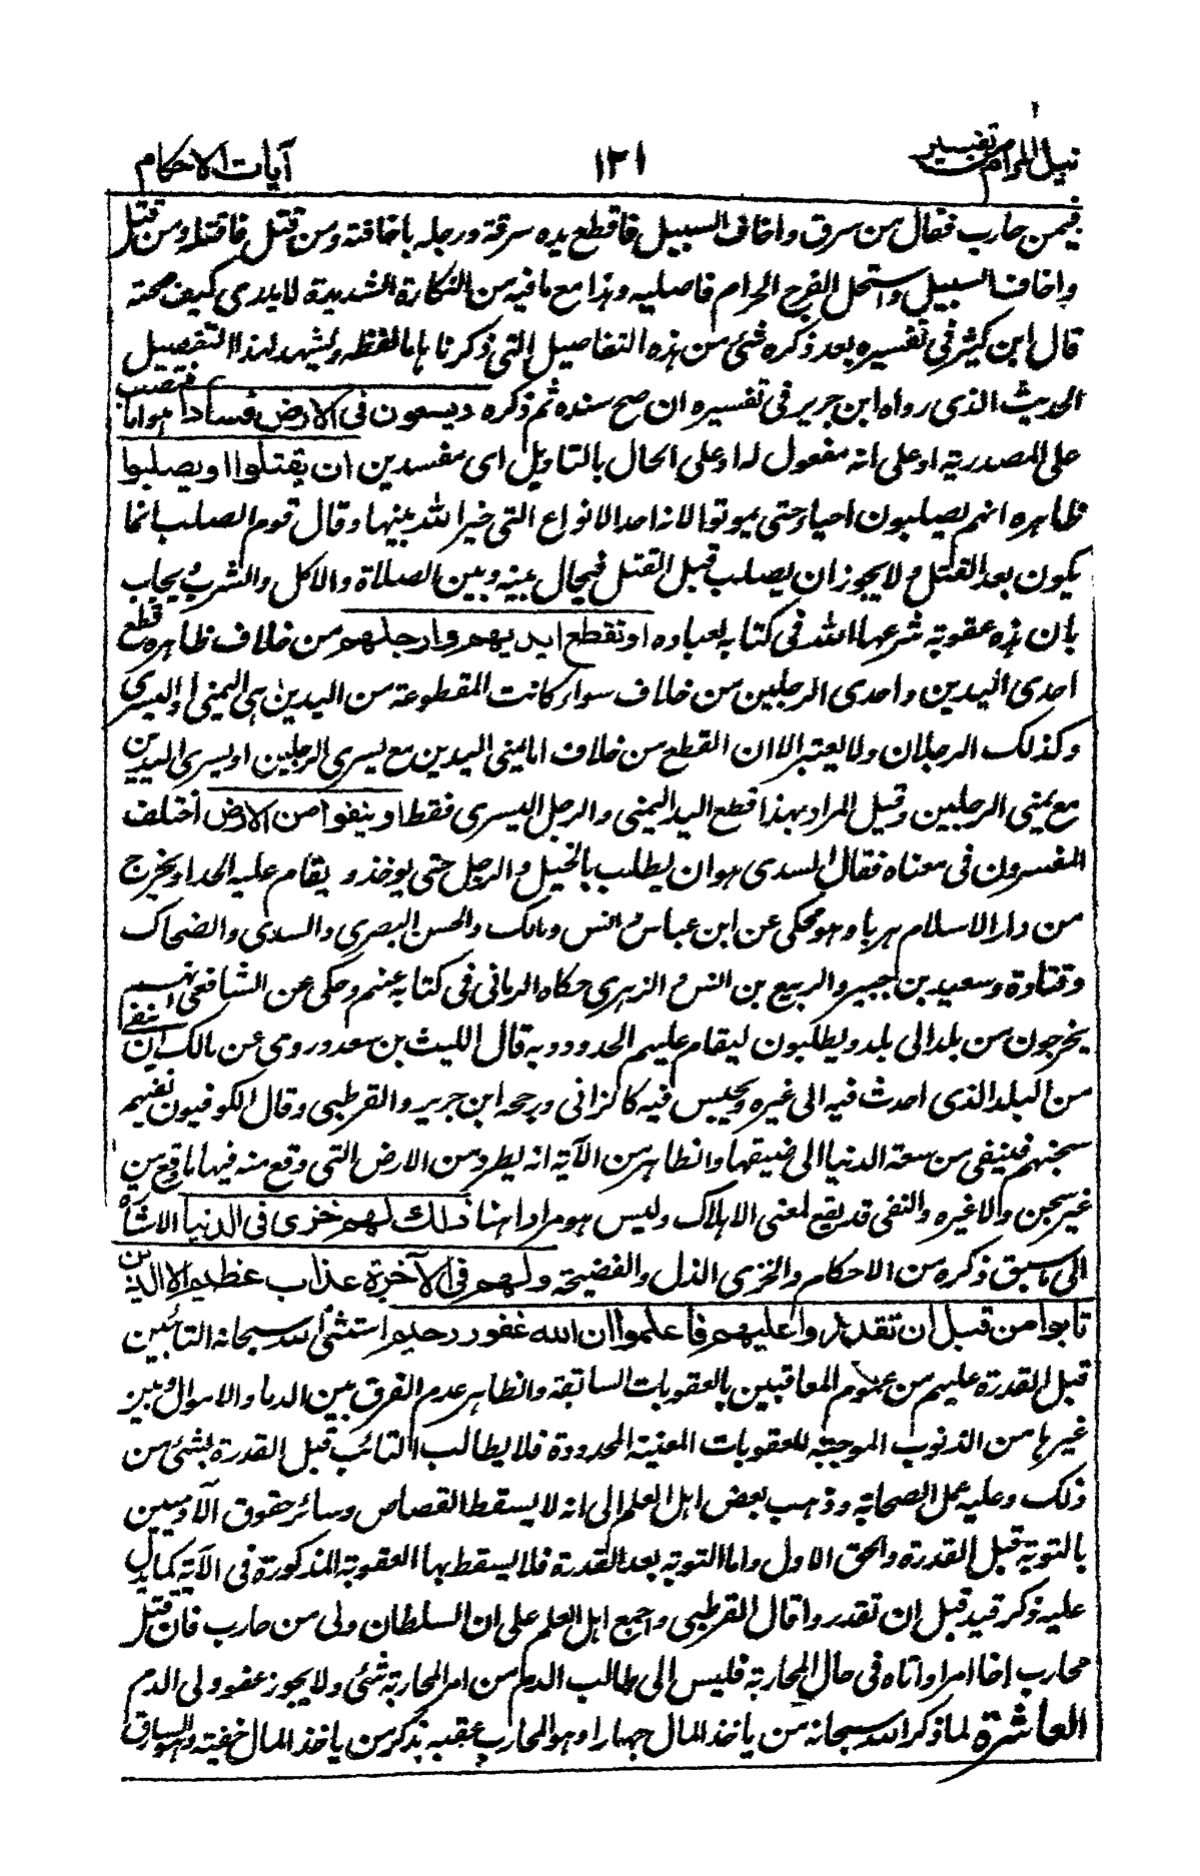 نيل المرام من تفسير ١٢١ آيات الاحكام
فيمن حارب فقال من سرق واخاف السبيل فاقطع يده سرقة ورجله باخافته ومن قتل فاقتله ومن قتل
واخاف السبيل واستحل الفرج الحرام فاصلبه وهذا مع ما فيه من النكارة الشديدة لا يدرى كيف صحته
قال ابن كثير فى تفسيره بعد ذكره شئ من هذه التفاصيل التى ذكرناها ما لفظه ويشهد لهذا التفصيل
الحديث الذى رواه ابن جرير فى تفسيره ان صح سنده ثم ذكره ويسعون فى الارض فسادا هو اما منتصب
على المصدرية او على انه مفعول له او على الحال بالتاويل اى مفسدين ان يقتلوا او يصلبوا
ظاهره انهم يصلبون احياء حتى يموتوا لانه احد الانواع التى خير الله بينها وقال قوم الصلب انما
يكون بعد القتل ولا يجوز ان يصلب قبل القتل فيحال بينه وبين الصلاة والاكل والشرب ويجاب
بان هذه عقوبة شرعها الله فى كتابه لعباده او تقطع ايديهم وارجلهم من خلاف ظاهره قطع
احدى اليدين واحدى الرجلين من خلاف سواء كانت المقطوعة من اليدين هى اليمنى او اليسرى
وكذلك الرجلان ولا يعتبر الا ان القطع من خلاف اما يمنى اليدين مع يسرى الرجلين او يسرى اليدين
مع يمنى الرجلين وقيل المراد بهذا قطع اليد اليمنى والرجل اليسرى فقط او ينفوا من الارض اختلف
المفسرون فى معناه فقال السدى هو ان يطلب بالخيل والرجل حتى يوخذ ويقام عليه الحد او يخرج
من دار الاسلام هربا وهو محكى عن ابن عباس وانس ومالك والحسن البصرى والسدى والضحاك
وقتادة وسعيد بن جبير والربيع بن انس والزهرى حكاه الرمانى فى كتابه عنهم وحكى عن الشافعى انهم
يخرجون من بلد الى بلد ويطلبون ليقام عليهم الحدود وبه قال الليث بن سعد وروى عن مالك ان ينفى
من البلد الذى احدث فيه الى غيره ويحبس فيه كالزانى ورجحه ابن جرير والقرطبى وقال الكوفيون نفيهم
سجنهم فينفى من سعة الدنيا الى ضيقها والظاهر من الآية انه يطرد من الارض التى وقع منه فيها ما وقع من
غير سجن ولا غيره والنفى قد يقع لمعنى الاهلاك وليس هو مرادا هنا ذلك لهم خزى فى الدنيا الاشارة
الى ما سبق ذكره من الاحكام والخزى الذل والفضيحة ولهم فى الآخرة عذاب عظيم الا الذين
تابوا من قبل ان تقدروا عليهم فاعلموا ان الله غفور رحيم استثنى الله سبحانه التائبين
قبل القدرة عليهم من عموم المعاقبين بالعقوبات السابقة والظاهر عدم الفرق بين الدماء والاموال وبين
غيرها من الذنوب الموجبة للعقوبات المعينة المحدودة فلا يطالب التائب قبل القدرة بشئ من
ذلك وعليه عمل الصحابة وذهب بعض اهل العلم الى انه لا يسقط القصاص وسائر حقوق الآدميين
بالتوبة قبل القدرة والحق الاول واما التوبة بعد القدرة فلا يسقط بها العقوبة المذكورة فى الآية كما يدل
عليه ذكر قيد قبل ان تقدروا قال القرطبى واجمع اهل العلم على ان السلطان ولى من حارب فان قتل
محارب اخا امرأ واتاه فى حال المحاربة فليس الى طالب الدم من امر المحاربة شئ ولا يجوز عفو ولى الدم
العاشرة لما ذكر الله سبحانه من ياخذ المال جهارا وهو المحارب عقبه بذكر من ياخذ المال خفية وهو السارق